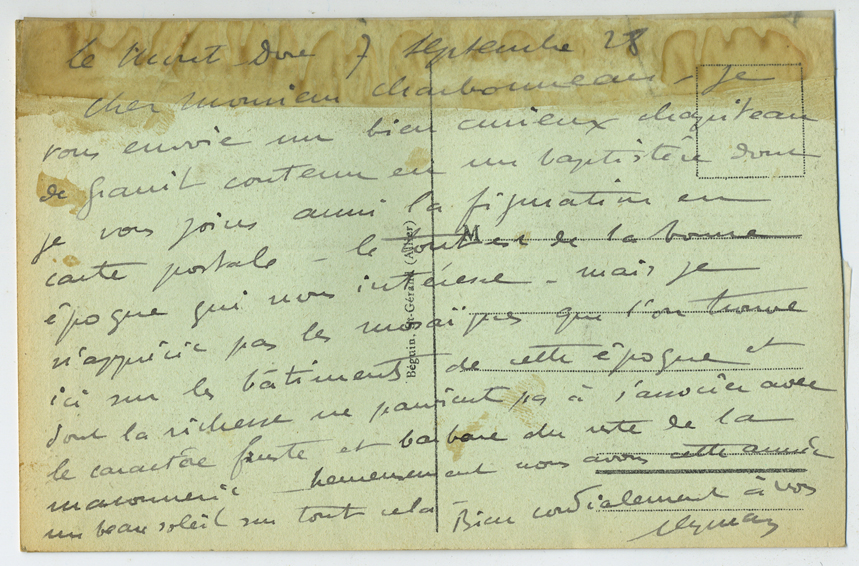 Le Mont Dore 7 septembre 28
Cher Monsieur Charbonneau - Je
vous envoie un bien curieux chapiteau
de granit contenu en un baptistère dont
je vous joins aussi la figuration en
carte postale - le tout est de la bonne
époque qui nous intéresse - mais je
n'apprécie pas les mosaïques que l'on trouve
ici sur les bâtiments de cette époque et
dont la richesse ne parvient pas à s'associer avec
le caractère fruste et barbare du reste de la
maçonnerie - heureusement nous avons cette année
un beau soleil sur tout cela - Bien cordialement à vous
M
Béguin, St-Gérand (Allier)